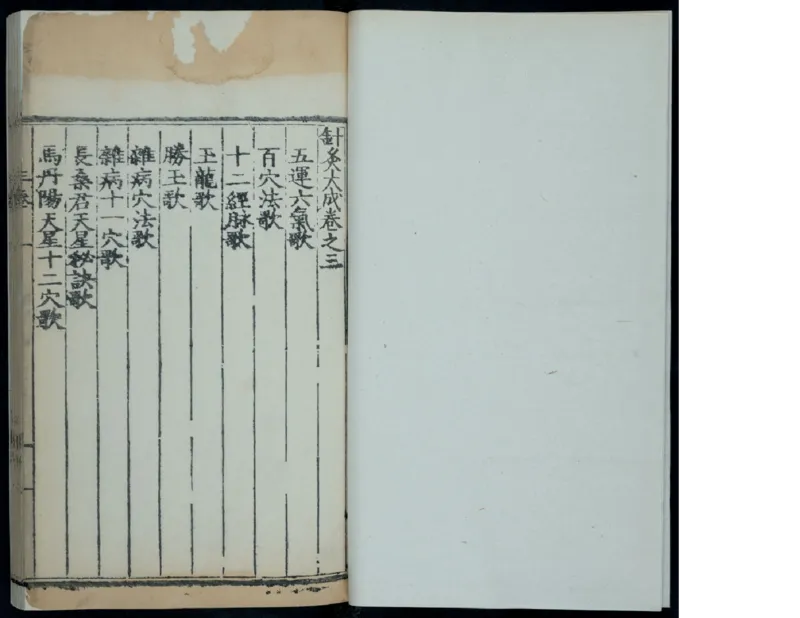 針灸大成卷之三
五運六氣歌
百穴法歌
十二經脉歌
玉龍歌
勝玉歌
雜病穴法歌
雜病十一穴歌
長桑君天星秘訣歌
馬丹陽天星十二穴歌